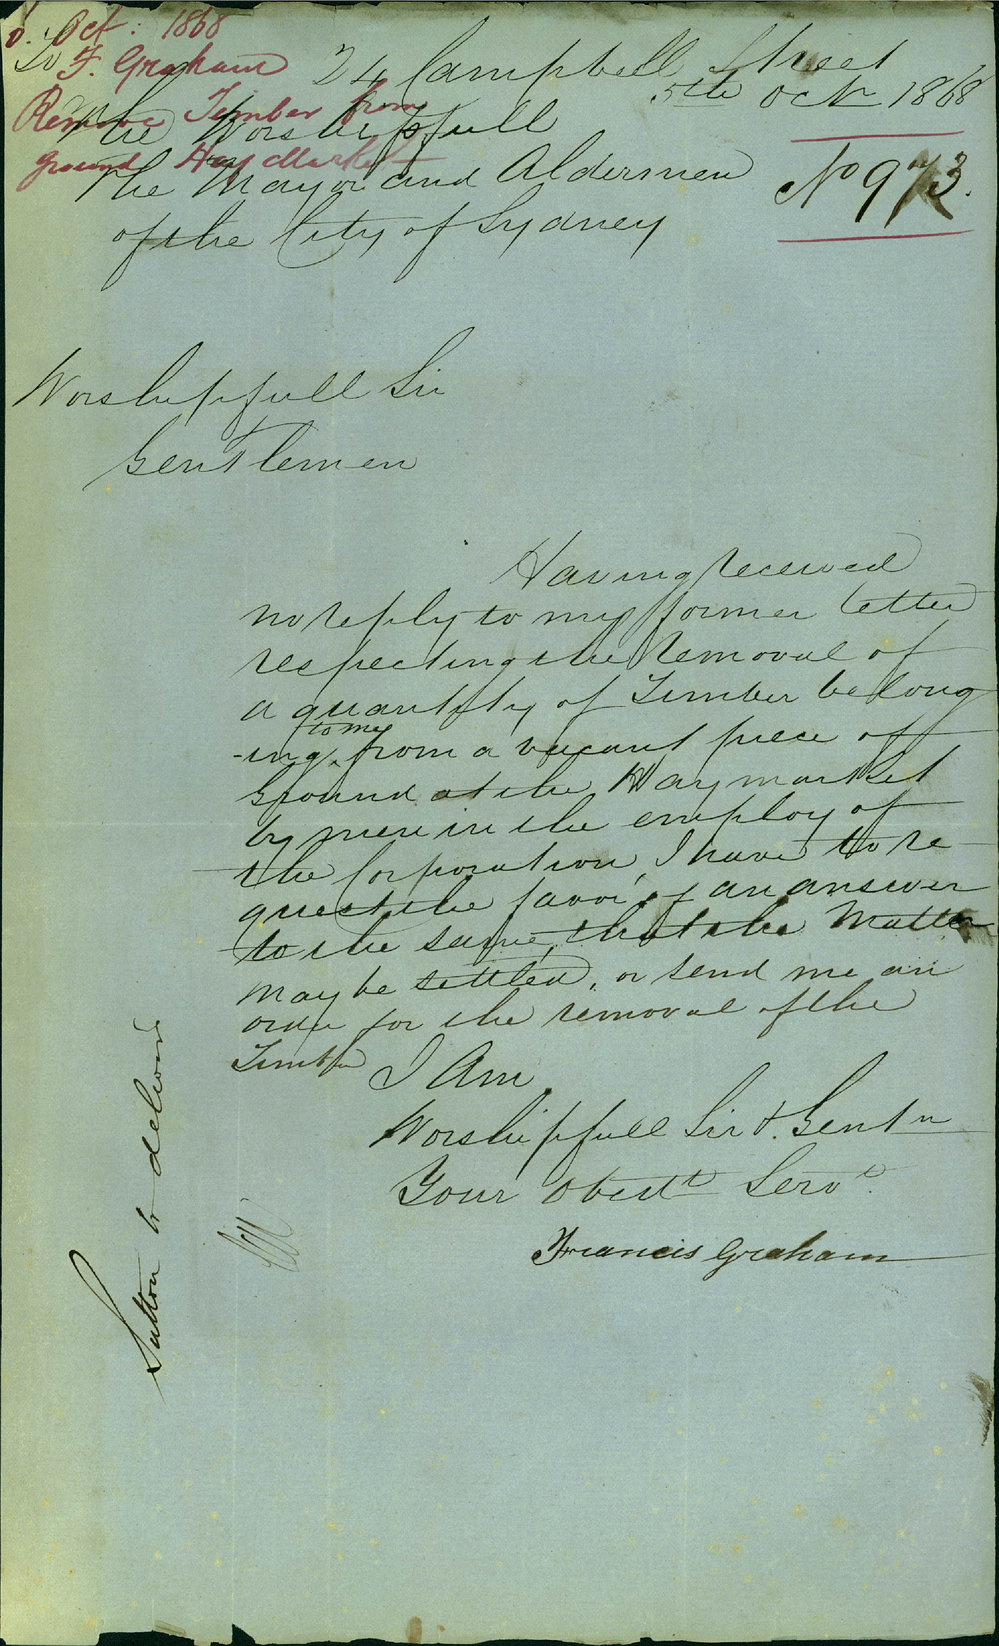 Oct: 1868
F. Graham
Remove Timber from
ground Hay Market
24 Campbell Street
5th Octr 1868
No 973.
To
The Worshipfull
The Mayor and Aldermen
of the City of Sydney
Worshipfull Sir
Gentlemen
Having received
no reply to my former letter
respecting the removal of
a quantity of Timber belong
-ing to me from a vacant piece of
Ground at the Haymarket
by men in the employ of
the Corporation, I have to re
quest the favor of an answer
to the same, that the Matter
may be settled, or send me an
order for the removal of the
Timber
I Am
Worshipfull Sir & Gentn
Your obedt Servt
Francis Graham
Sutton to deliver